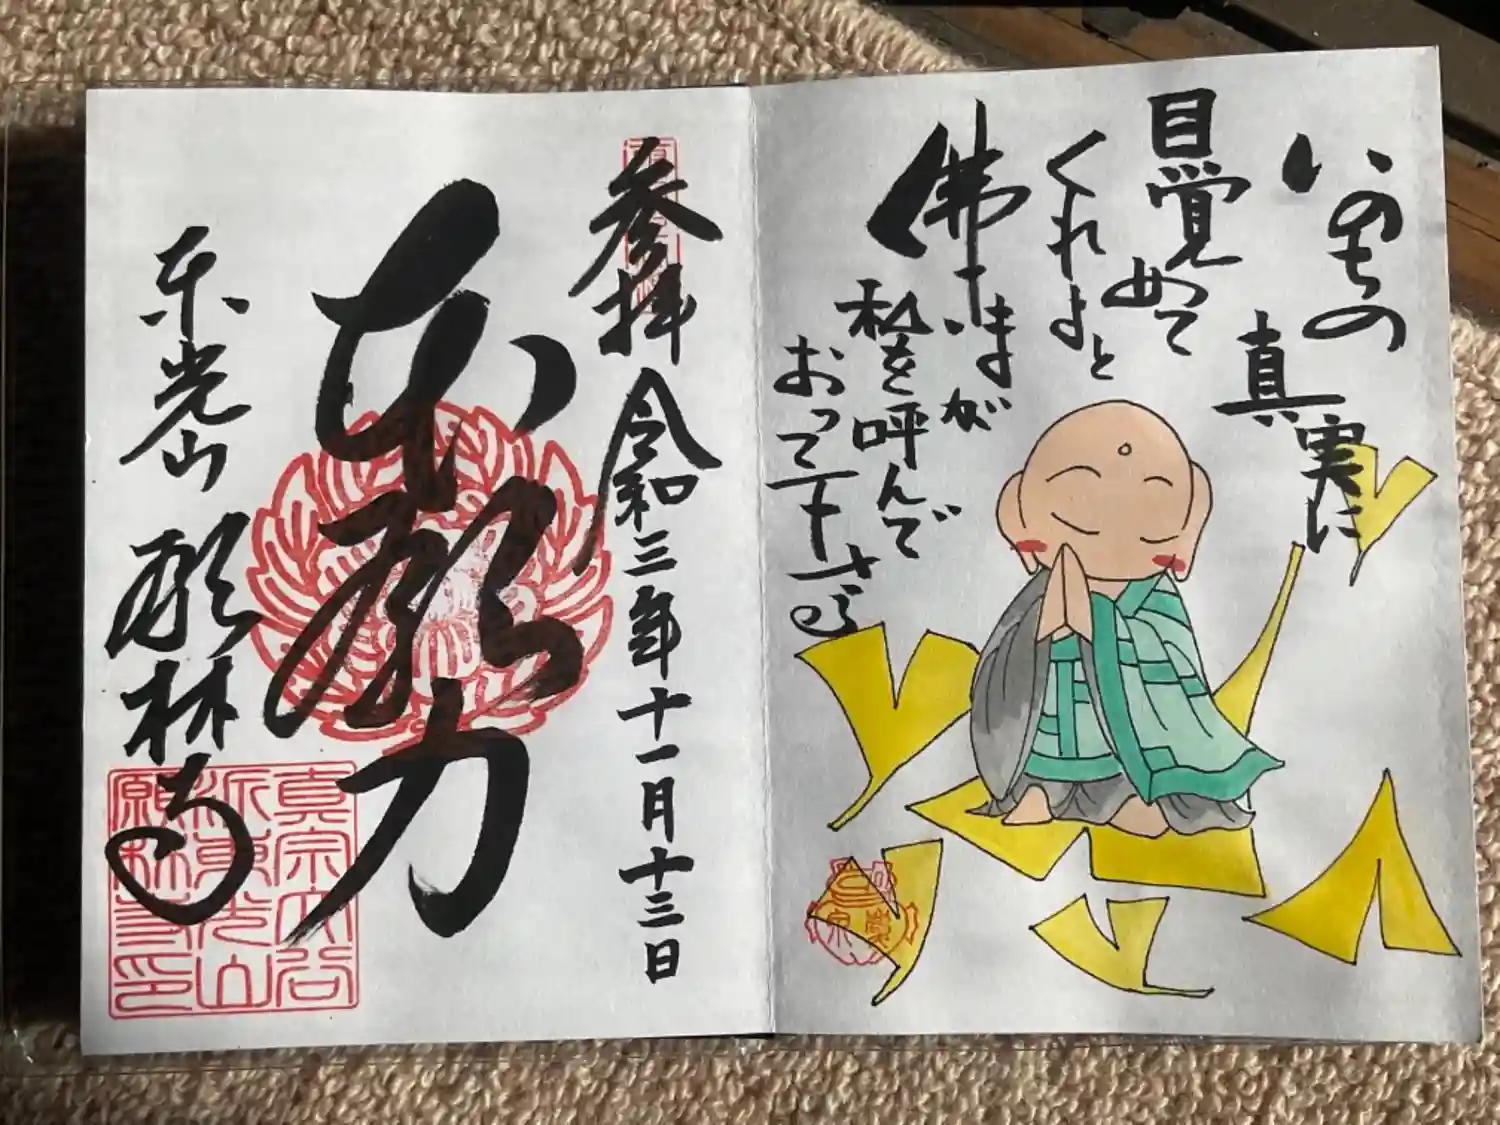 いのちの
真実に
目覚めて
くれよと
佛さまが
私を呼んで
おって下さる
参拝 令和三年十一月十三日
本願力
東光山 願林寺
真宗大谷
派東光山
願林寺印